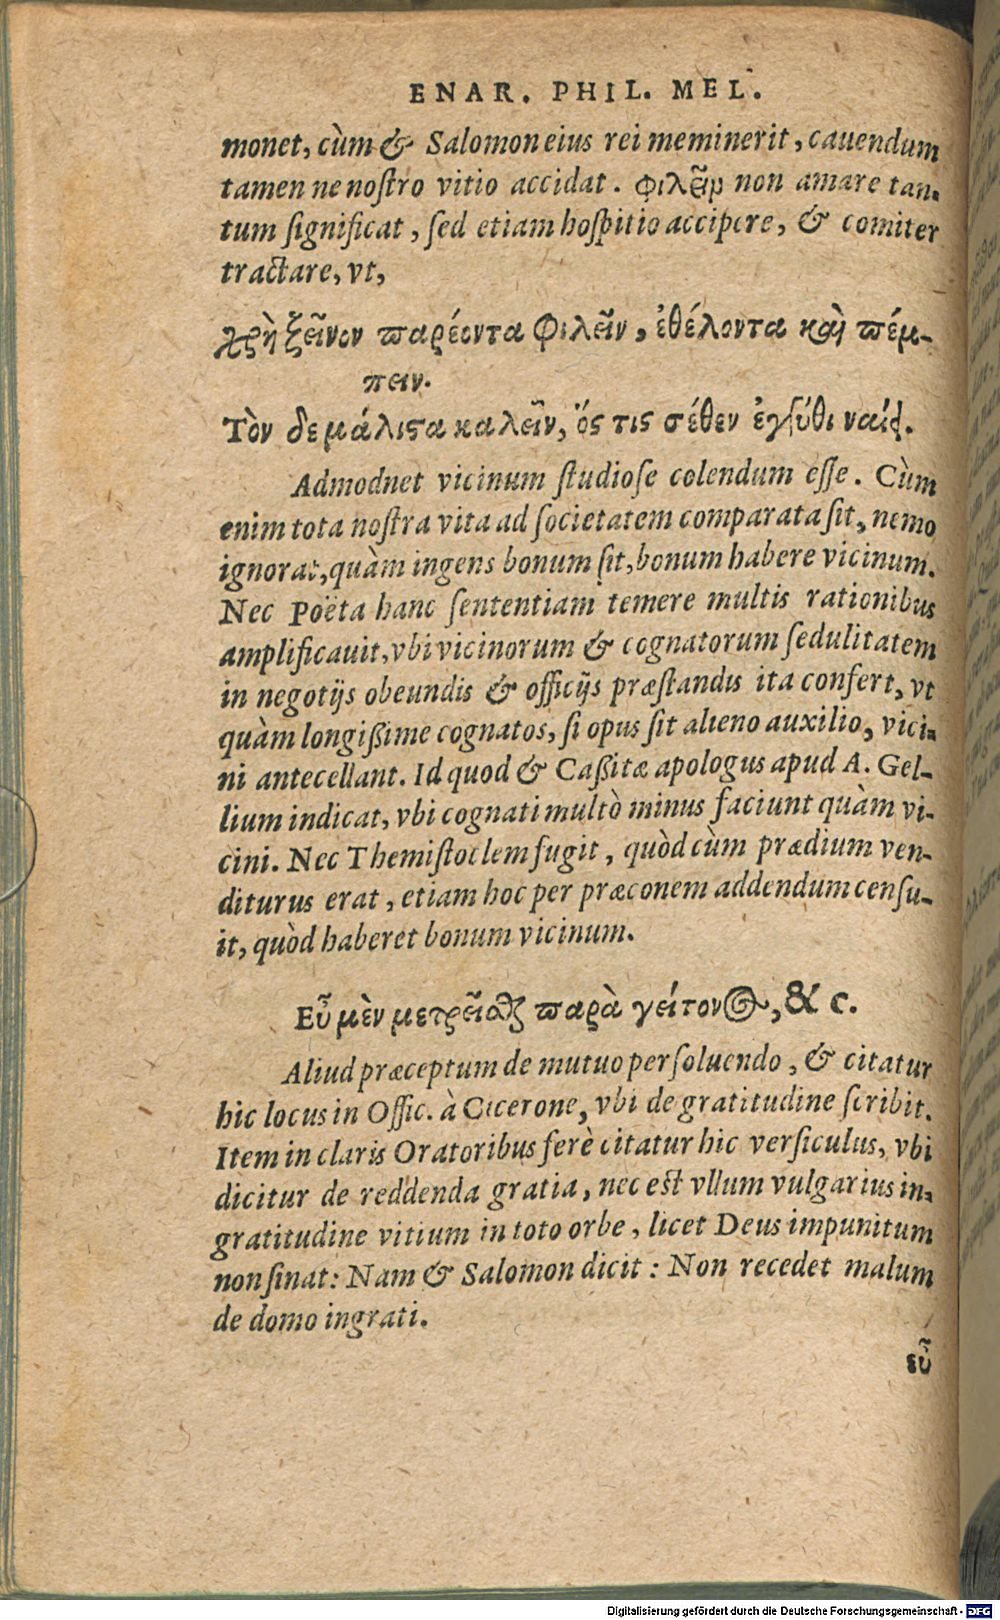 ENAR. PHIL. MEL.
monet, cùm & Salomon eius rei meminerit, cauendum
tamen ne noſtro vitio accidat. φιλεῖν non amare tan-
tum ſignificat, ſed etiam hoſpitio accipere, & comiter
tractare, vt,
χρὴ ξεῖνον παρέοντα φιλεῖν, ἐθέλοντα καὶ πέμ-
πειν.
Τὸν δε μάλιςα καλεῖν, ὅς τις σέθεν ἐγγύθι ναίει.
Admodnet vicinum ſtudioſe colendum eſſe. Cùm
enim tota noſtra vita ad ſocietatem comparata ſit, nemo
ignorat, quàm ingens bonum ſit, bonum habere vicinum.
Nec Poëta hanc ſententiam temere multis rationibus
amplificauit, vbi vicinorum & cognatorum ſedulitatem
in negotijs obeundis & officijs præſtandis ita confert, vt
quàm longißime cognatos, ſi opus ſit alieno auxilio, vici-
ni antecellant. Id quod & Caßitæ apologus apud A. Gel-
lium indicat, vbi cognati multò minus faciunt quàm vi-
cini. Nec Themiſtoclem fugit, quòd cùm prædium ven-
diturus erat, etiam hoc per præconem addendum cenſu-
it, quòd haberet bonum vicinum.
Εὖ μὲν μετρεῖσθαι παρὰ γείτονος, & c.
Aliud præceptum de mutuo perſoluendo, & citatur
hic locus in Offic. à Cicerone, vbi de gratitudine ſcribit.
Item in claris Oratoribus ferè citatur hic verſiculus, vbi
dicitur de reddenda gratia, nec eſt vllum vulgarius in-
gratitudine vitium in toto orbe, licet Deus impunitum
non ſinat: Nam & Salomon dicit: Non recedet malum
de domo ingrati.
εὖ
Digitalisierung gefördert durch die Deutsche Forschungsgemeinschaft - DFG